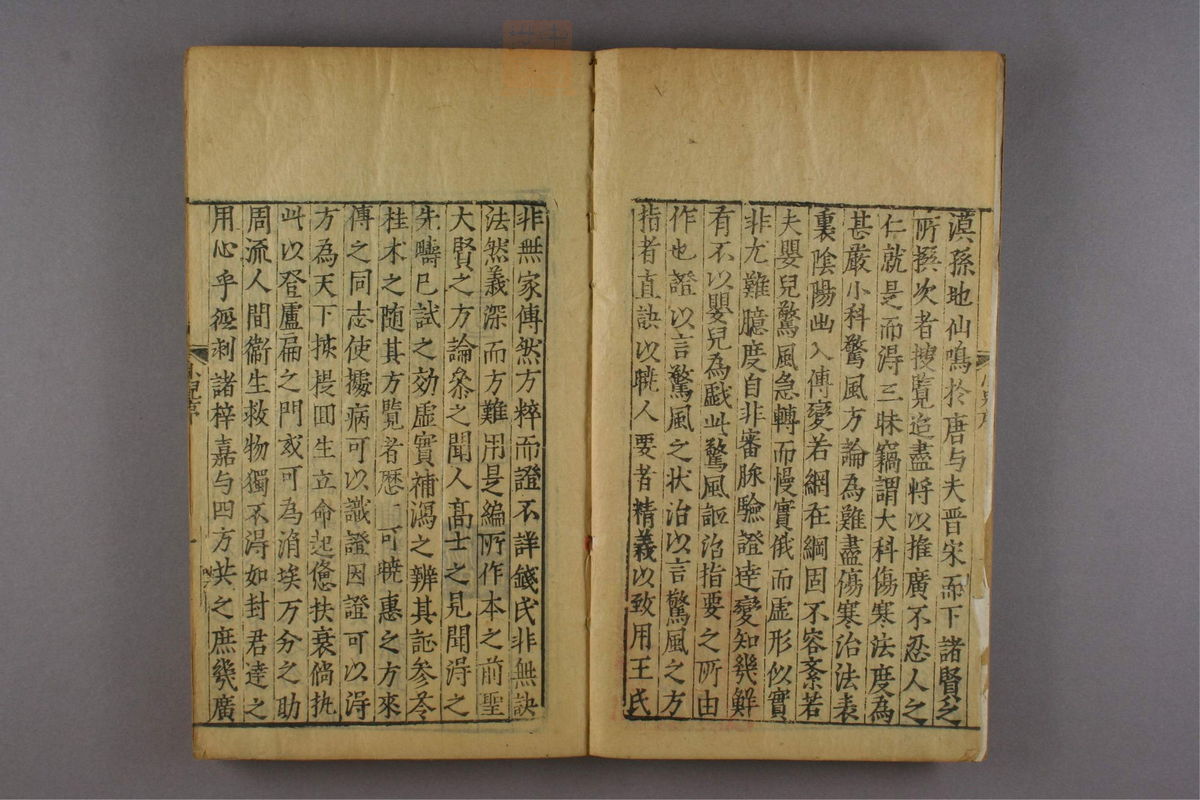 漠孫地仙鳴於唐与夫晋宋而下諸賢之
所撰次者搜覧迨盡将以推廣不忍人之
仁就是而得三昧竊謂大科傷寒法度為
甚嚴小科驚風方論為難盡傷寒治法表
裏陰陽幽入傳變若網在綱固不容紊若
夫嬰兒驚風急轉而慢實俄而虚形似實
非尤難臆度自非審脉驗證達變知幾鮮
有不以嬰兒為戯此驚風証治指要之所由
作也證以言驚風之状治以言驚風之方
指者直訣以暁人要者精義以致用王氏
非無家傳然方粹而證不詳錢氏非無訣
法然義深而方難用是編所作本之前聖
大賢之方論叅之聞人髙士之見聞淂之
先疇已試之効虚實補瀉之辨其証参苓
桂术之随其方覧者歴一可暁惠之方来
傳之同志使據病可以識證因證可以淂
方為天下拔畏囬生立命起憊扶衰倘执
此以登廬扁之門或可為涓埃万分之助
周流人間衞生救物獨不淂如封君達之
用心乎経刺諸梓嘉与四方共之庶幾廣